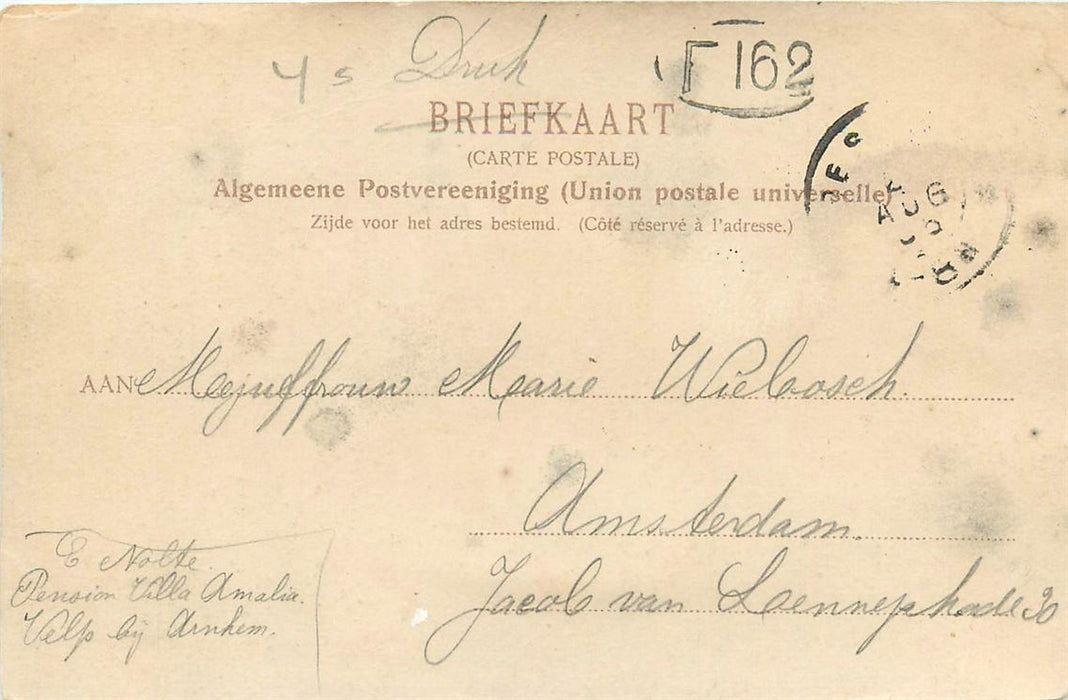 4 s Druk
F 162
BRIEFKAART
(CARTE POSTALE)
Algemeene Postvereeniging (Union postale universelle)
Zijde voor het adres bestemd. (Côté réservé à l'adresse.)
AUG
AAN Mejuffrouw Marie Wiebosch.
Amsterdam.
Jacob van Lennepkade 30
E Nolte.
Pension Villa Amalia.
Velp bij Arnhem.